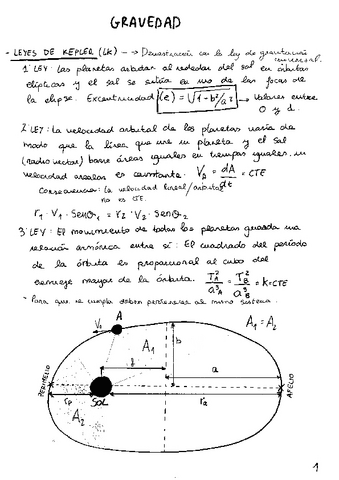 GRAVEDAD
- LEYES DE KEPLER (LK) --> Demostración con la ley de gravitación universal.
1ª LEY: Los planetas orbitan alrededor del sol en órbitas
elípticas y el sol se sitúa en uno de los focos de
la elipse. Excentricidad (e) = √1-b²/a² → Valores entre
0 y 1.
2ª LEY: La velocidad orbital de los planetas varía de
modo que la línea que une un planeta y el sol
(radio vector) barre áreas iguales en tiempos iguales, su
velocidad areolar es constante. Va = dA/dt = CTE
Consecuencia: La velocidad lineal/orbital
no es CTE.
r1 · V1 · senθ1 = r2 · V2 · senθ2
3ª LEY: El movimiento de todos los planetas guarda una
relación armónica entre sí: El cuadrado del período
de la órbita es proporcional al cubo del
semieje mayor de la órbita. T²A/a³A = T²B/a³B = K=CTE
- Para que se cumpla deben pertenecer al mismo sistema.
A
A1 = A2
A1
b
a
PERIHELIO
rp
SOL
ra
AFELIO
A2
1